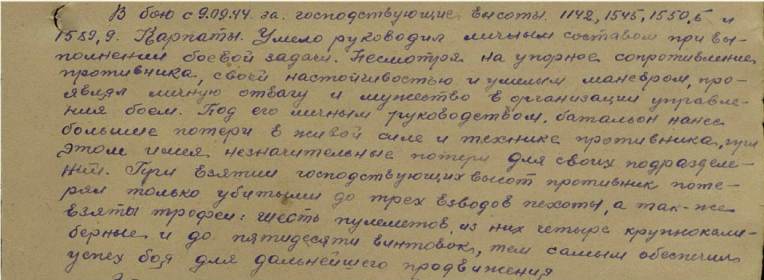 В бою с 9.09.44 за господствующие высоты 1142, 1545, 1550,5 и
1589,9. Карпаты. Умело руководил личным составом при вы-
полнении боевой задачи. Несмотря на упорное сопротивление
противника, своей настойчивостью и умелым манёвром, про-
являл личную отвагу и мужество в организации управле-
ния боем. Под его личным руководством, батальон нанес
большие потери в живой силе и технике противника, при
этом имея незначительные потери для своих подразделе-
ний. При взятии господствующих высот противник поте-
рял только убитыми до трех взводов пехоты, а так-же
взяты трофеи: шесть пулеметов, из них четыре крупнокали-
берные и до пятидесяти винтовок, тем самым обеспечил
успех боя для дальнейшего продвижения